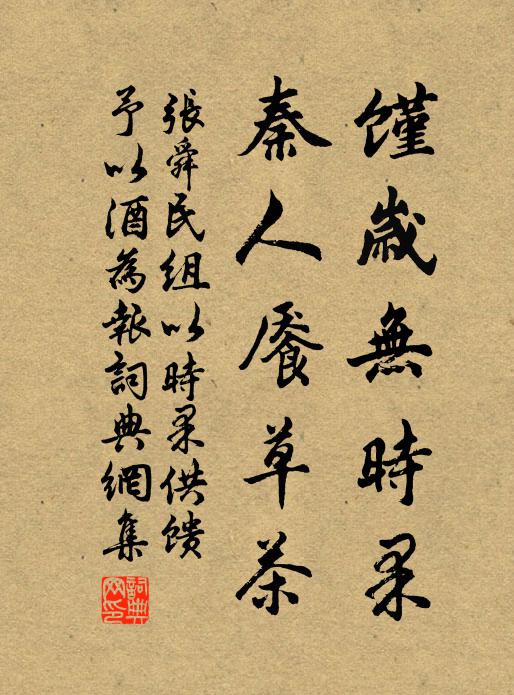 饉歲無時果
秦人饜草茶
張舜民組以時果供饋
予以酒為報詞典網集
詞典网印